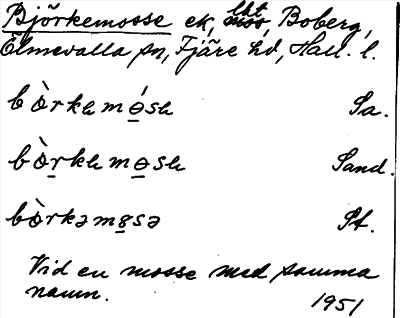 Björkemosse ek, lht, Boberg,
Elmevalla sn, Fjäre hd, Hall. l.
bòrkəmó̱sə Sa.
bòṟkəmo̱sə Sand.
bòrkəmo̱sə St.
Vid en mosse med samma
namn. 1951